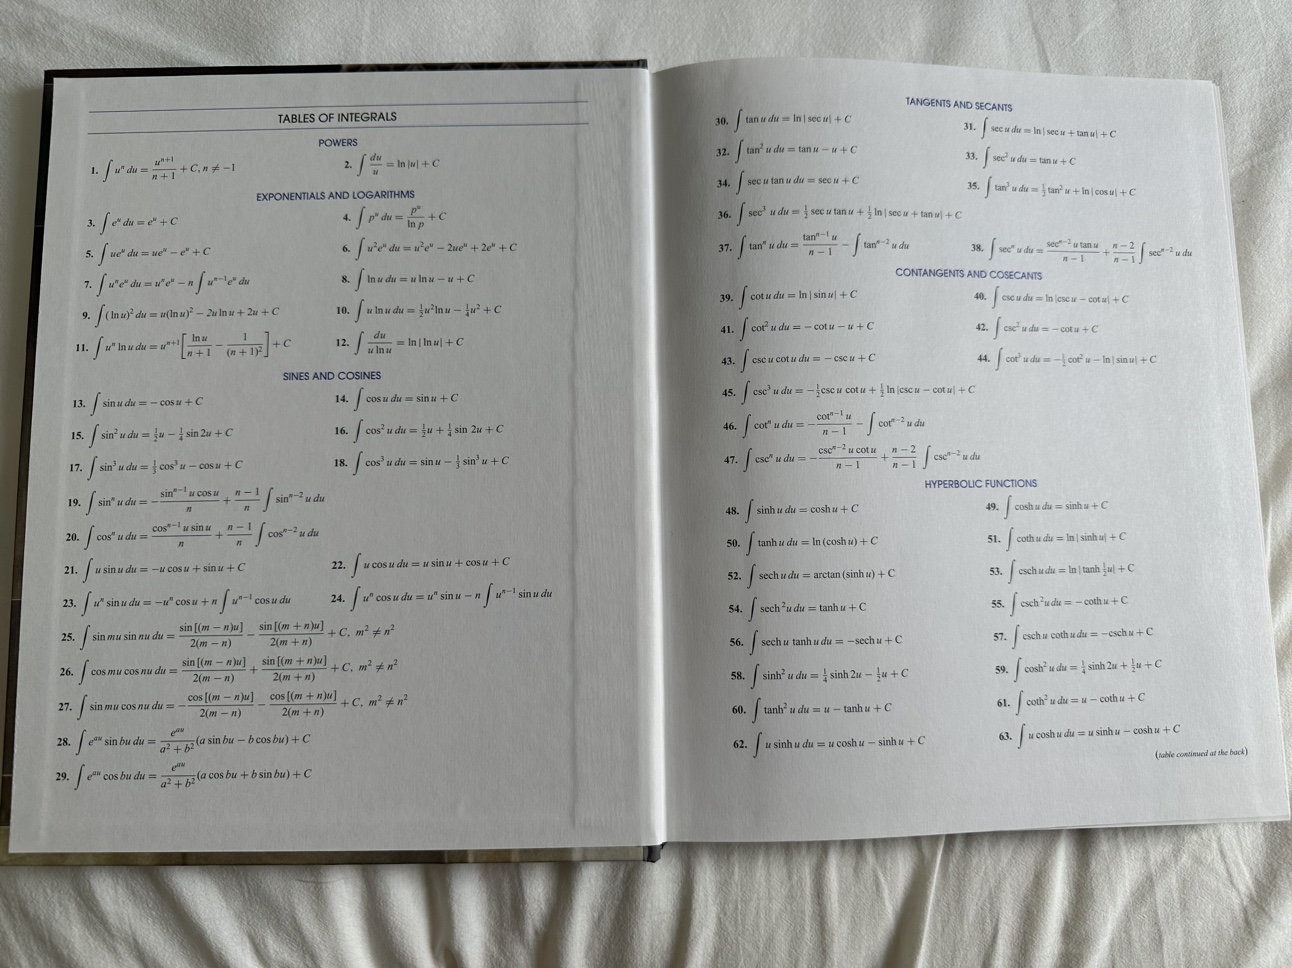 TABLES OF INTEGRALS
POWERS
1. ∫ uⁿ du = uⁿ⁺¹/(n + 1) + C, n ≠ −1
2. ∫ du/u = ln |u| + C
EXPONENTIALS AND LOGARITHMS
3. ∫ eᵘ du = eᵘ + C
4. ∫ pᵘ du = pᵘ/ln p + C
5. ∫ ueᵘ du = ueᵘ − eᵘ + C
6. ∫ u²eᵘ du = u²eᵘ − 2ueᵘ + 2eᵘ + C
7. ∫ uⁿeᵘ du = uⁿeᵘ − n ∫ uⁿ⁻¹eᵘ du
8. ∫ ln u du = u ln u − u + C
9. ∫ (ln u)² du = u(ln u)² − 2u ln u + 2u + C
10. ∫ u ln u du = ½u² ln u − ¼u² + C
11. ∫ uⁿ ln u du = uⁿ⁺¹ [ln u/(n + 1) − 1/(n + 1)²] + C
12. ∫ du/(u ln u) = ln | ln u| + C
SINES AND COSINES
13. ∫ sin u du = − cos u + C
14. ∫ cos u du = sin u + C
15. ∫ sin² u du = ½u − ¼ sin 2u + C
16. ∫ cos² u du = ½u + ¼ sin 2u + C
17. ∫ sin³ u du = ⅓ cos³ u − cos u + C
18. ∫ cos³ u du = sin u − ⅓ sin³ u + C
19. ∫ sinⁿ u du = − sinⁿ⁻¹ u cos u/n + (n − 1)/n ∫ sinⁿ⁻² u du
20. ∫ cosⁿ u du = cosⁿ⁻¹ u sin u/n + (n − 1)/n ∫ cosⁿ⁻² u du
21. ∫ u sin u du = −u cos u + sin u + C
22. ∫ u cos u du = u sin u + cos u + C
23. ∫ uⁿ sin u du = −uⁿ cos u + n ∫ uⁿ⁻¹ cos u du
24. ∫ uⁿ cos u du = uⁿ sin u − n ∫ uⁿ⁻¹ sin u du
25. ∫ sin mu sin nu du = sin [(m − n)u]/2(m − n) − sin [(m + n)u]/2(m + n) + C, m² ≠ n²
26. ∫ cos mu cos nu du = sin [(m − n)u]/2(m − n) + sin [(m + n)u]/2(m + n) + C, m² ≠ n²
27. ∫ sin mu cos nu du = − cos [(m − n)u]/2(m − n) − cos [(m + n)u]/2(m + n) + C, m² ≠ n²
28. ∫ eᵃᵘ sin bu du = eᵃᵘ/(a² + b²) (a sin bu − b cos bu) + C
29. ∫ eᵃᵘ cos bu du = eᵃᵘ/(a² + b²) (a cos bu + b sin bu) + C
TANGENTS AND SECANTS
30. ∫ tan u du = ln | sec u| + C
31. ∫ sec u du = ln | sec u + tan u| + C
32. ∫ tan² u du = tan u − u + C
33. ∫ sec² u du = tan u + C
34. ∫ sec u tan u du = sec u + C
35. ∫ tan³ u du = ½ tan² u + ln | cos u| + C
36. ∫ sec³ u du = ½ sec u tan u + ½ ln | sec u + tan u| + C
37. ∫ tanⁿ u du = tanⁿ⁻¹ u/(n − 1) − ∫ tanⁿ⁻² u du
38. ∫ secⁿ u du = secⁿ⁻² u tan u/(n − 1) + (n − 2)/(n − 1) ∫ secⁿ⁻² u du
CONTANGENTS AND COSECANTS
39. ∫ cot u du = ln | sin u| + C
40. ∫ csc u du = ln |csc u − cot u| + C
41. ∫ cot² u du = − cot u − u + C
42. ∫ csc² u du = − cot u + C
43. ∫ csc u cot u du = − csc u + C
44. ∫ cot³ u du = −½ cot² u − ln | sin u| + C
45. ∫ csc³ u du = −½ csc u cot u + ½ ln |csc u − cot u| + C
46. ∫ cotⁿ u du = − cotⁿ⁻¹ u/(n − 1) − ∫ cotⁿ⁻² u du
47. ∫ cscⁿ u du = − cscⁿ⁻² u cot u/(n − 1) + (n − 2)/(n − 1) ∫ cscⁿ⁻² u du
HYPERBOLIC FUNCTIONS
48. ∫ sinh u du = cosh u + C
49. ∫ cosh u du = sinh u + C
50. ∫ tanh u du = ln (cosh u) + C
51. ∫ coth u du = ln | sinh u| + C
52. ∫ sech u du = arctan (sinh u) + C
53. ∫ csch u du = ln | tanh ½u| + C
54. ∫ sech² u du = tanh u + C
55. ∫ csch² u du = − coth u + C
56. ∫ sech u tanh u du = −sech u + C
57. ∫ csch u coth u du = −csch u + C
58. ∫ sinh² u du = ¼ sinh 2u − ½u + C
59. ∫ cosh² u du = ¼ sinh 2u + ½u + C
60. ∫ tanh² u du = u − tanh u + C
61. ∫ coth² u du = u − coth u + C
62. ∫ u sinh u du = u cosh u − sinh u + C
63. ∫ u cosh u du = u sinh u − cosh u + C
(table continued at the back)